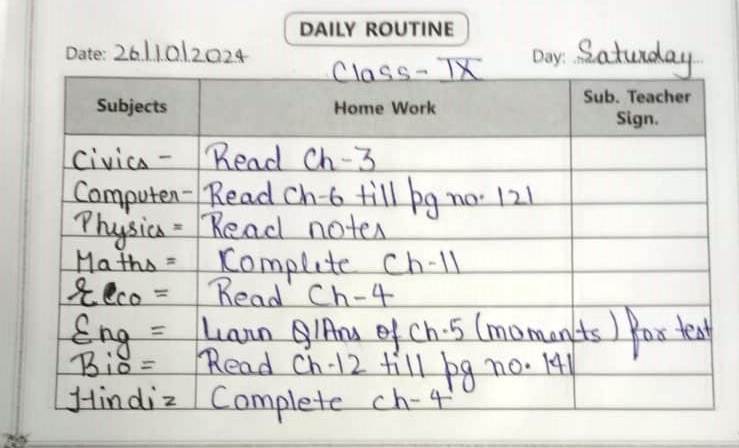 DAILY ROUTINE
Date: 26/10/2024 Day: Saturday
Class - IX
Subjects Home Work Sub. Teacher Sign.
Civics - Read Ch-3
Computer - Read Ch-6 till pg no. 121
Physics = Read notes
Maths = Complete Ch-11
Eco = Read Ch-4
Eng = Learn Q/Ans of Ch-5 (moments) for test
Bio = Read Ch-12 till pg no. 141
Hindi = Complete ch-4